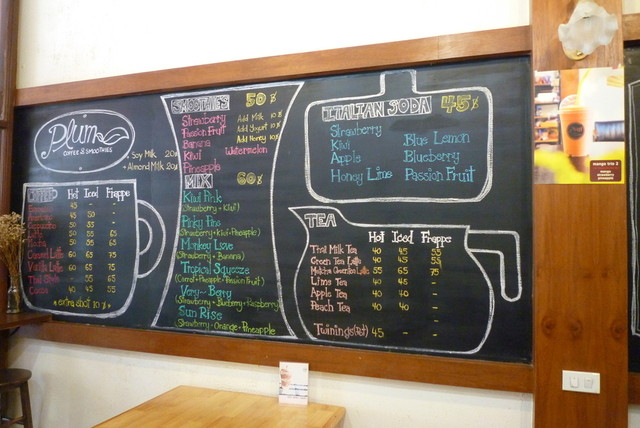 Plum
COFFEE & SMOOTHIES
+ Soy Milk 20
+ Almond Milk
COFFEE Hot Iced Frappe
45 -
45 50 -
50 55
50 55 65
55 65
Caramel Latte 60 65 75
Vanilla Latte 60 65 75
55 65
Cocoa 40 45 55
* extra shot 10
SMOOTHIES 50
Strawberry
Passion Fruit
Banana
Kiwi Watermelon
Pineapple
Add Milk 10
Add Yogurt 10
Add Honey 10
MIX 60
Kiwi Pink
(Strawberry + Kiwi)
Pinky Pine
(Strawberry + Kiwi + Pineapple)
Monkey Love
(Strawberry + Banana)
Tropical Squeeze
(Carrot + Pineapple + Passion Fruit)
Very - Berry
(Strawberry + Blueberry + Raspberry)
Sun Rise
(Strawberry + Orange + Pineapple
ITALIAN SODA 45
Strawberry
Kiwi
Apple
Honey Lime
Blue Lemon
Blueberry
Passion Fruit
TEA
Hot Iced Frappe
Thai Milk Tea 40 45 55
Green Tea Latte 40 45 55
Matcha Greentea Latte 55 65 75
Lime Tea 40 45 -
Apple Tea 40 40 -
Peach Tea 40 40 -
Twinings (Pot) 45 - -